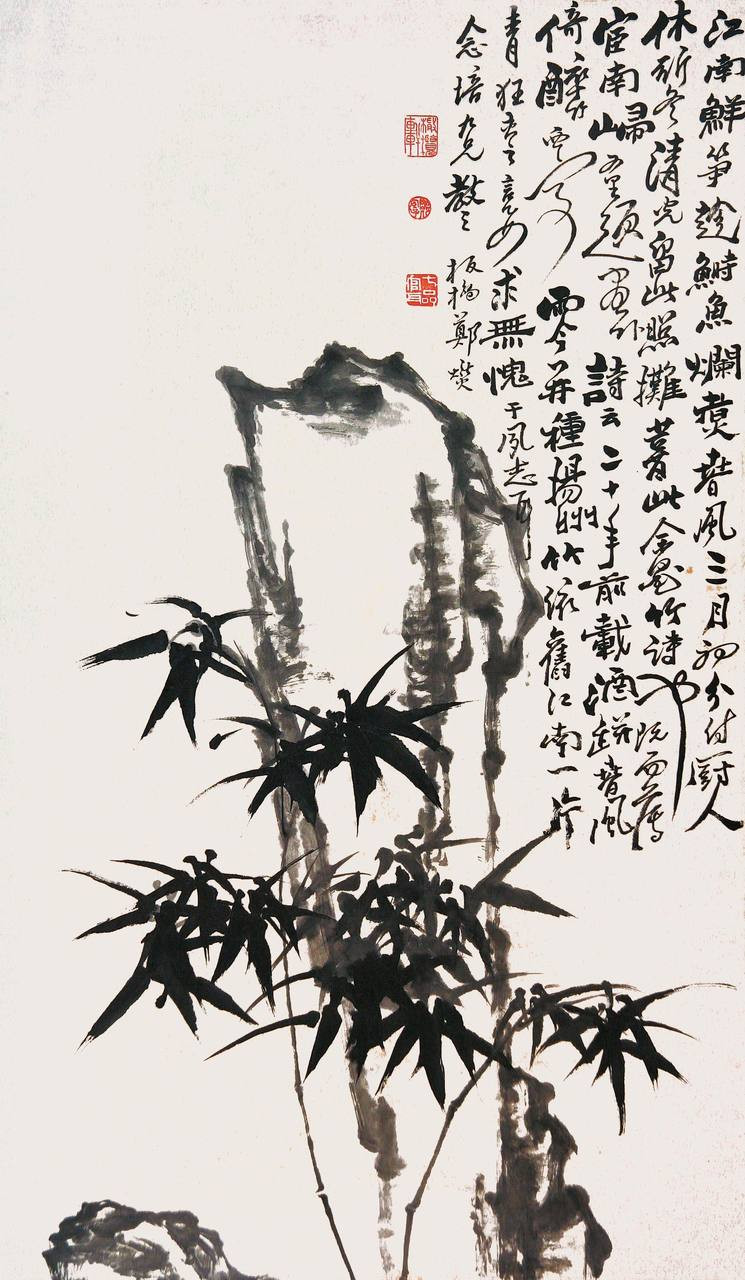 江南鮮筍趁鰣魚爛煮春風三月初分付廚人
休斫盡清光留此照攤書此余畫竹詩也既而薄
宦南歸題畫詩云二十年前載酒瓶春風
倚醉竹西亭而今再種揚州竹依舊江南一片
青狂夫之言求無愧于夙志
念培九兄教之
板橋鄭燮
橄欖軒
七品官耳